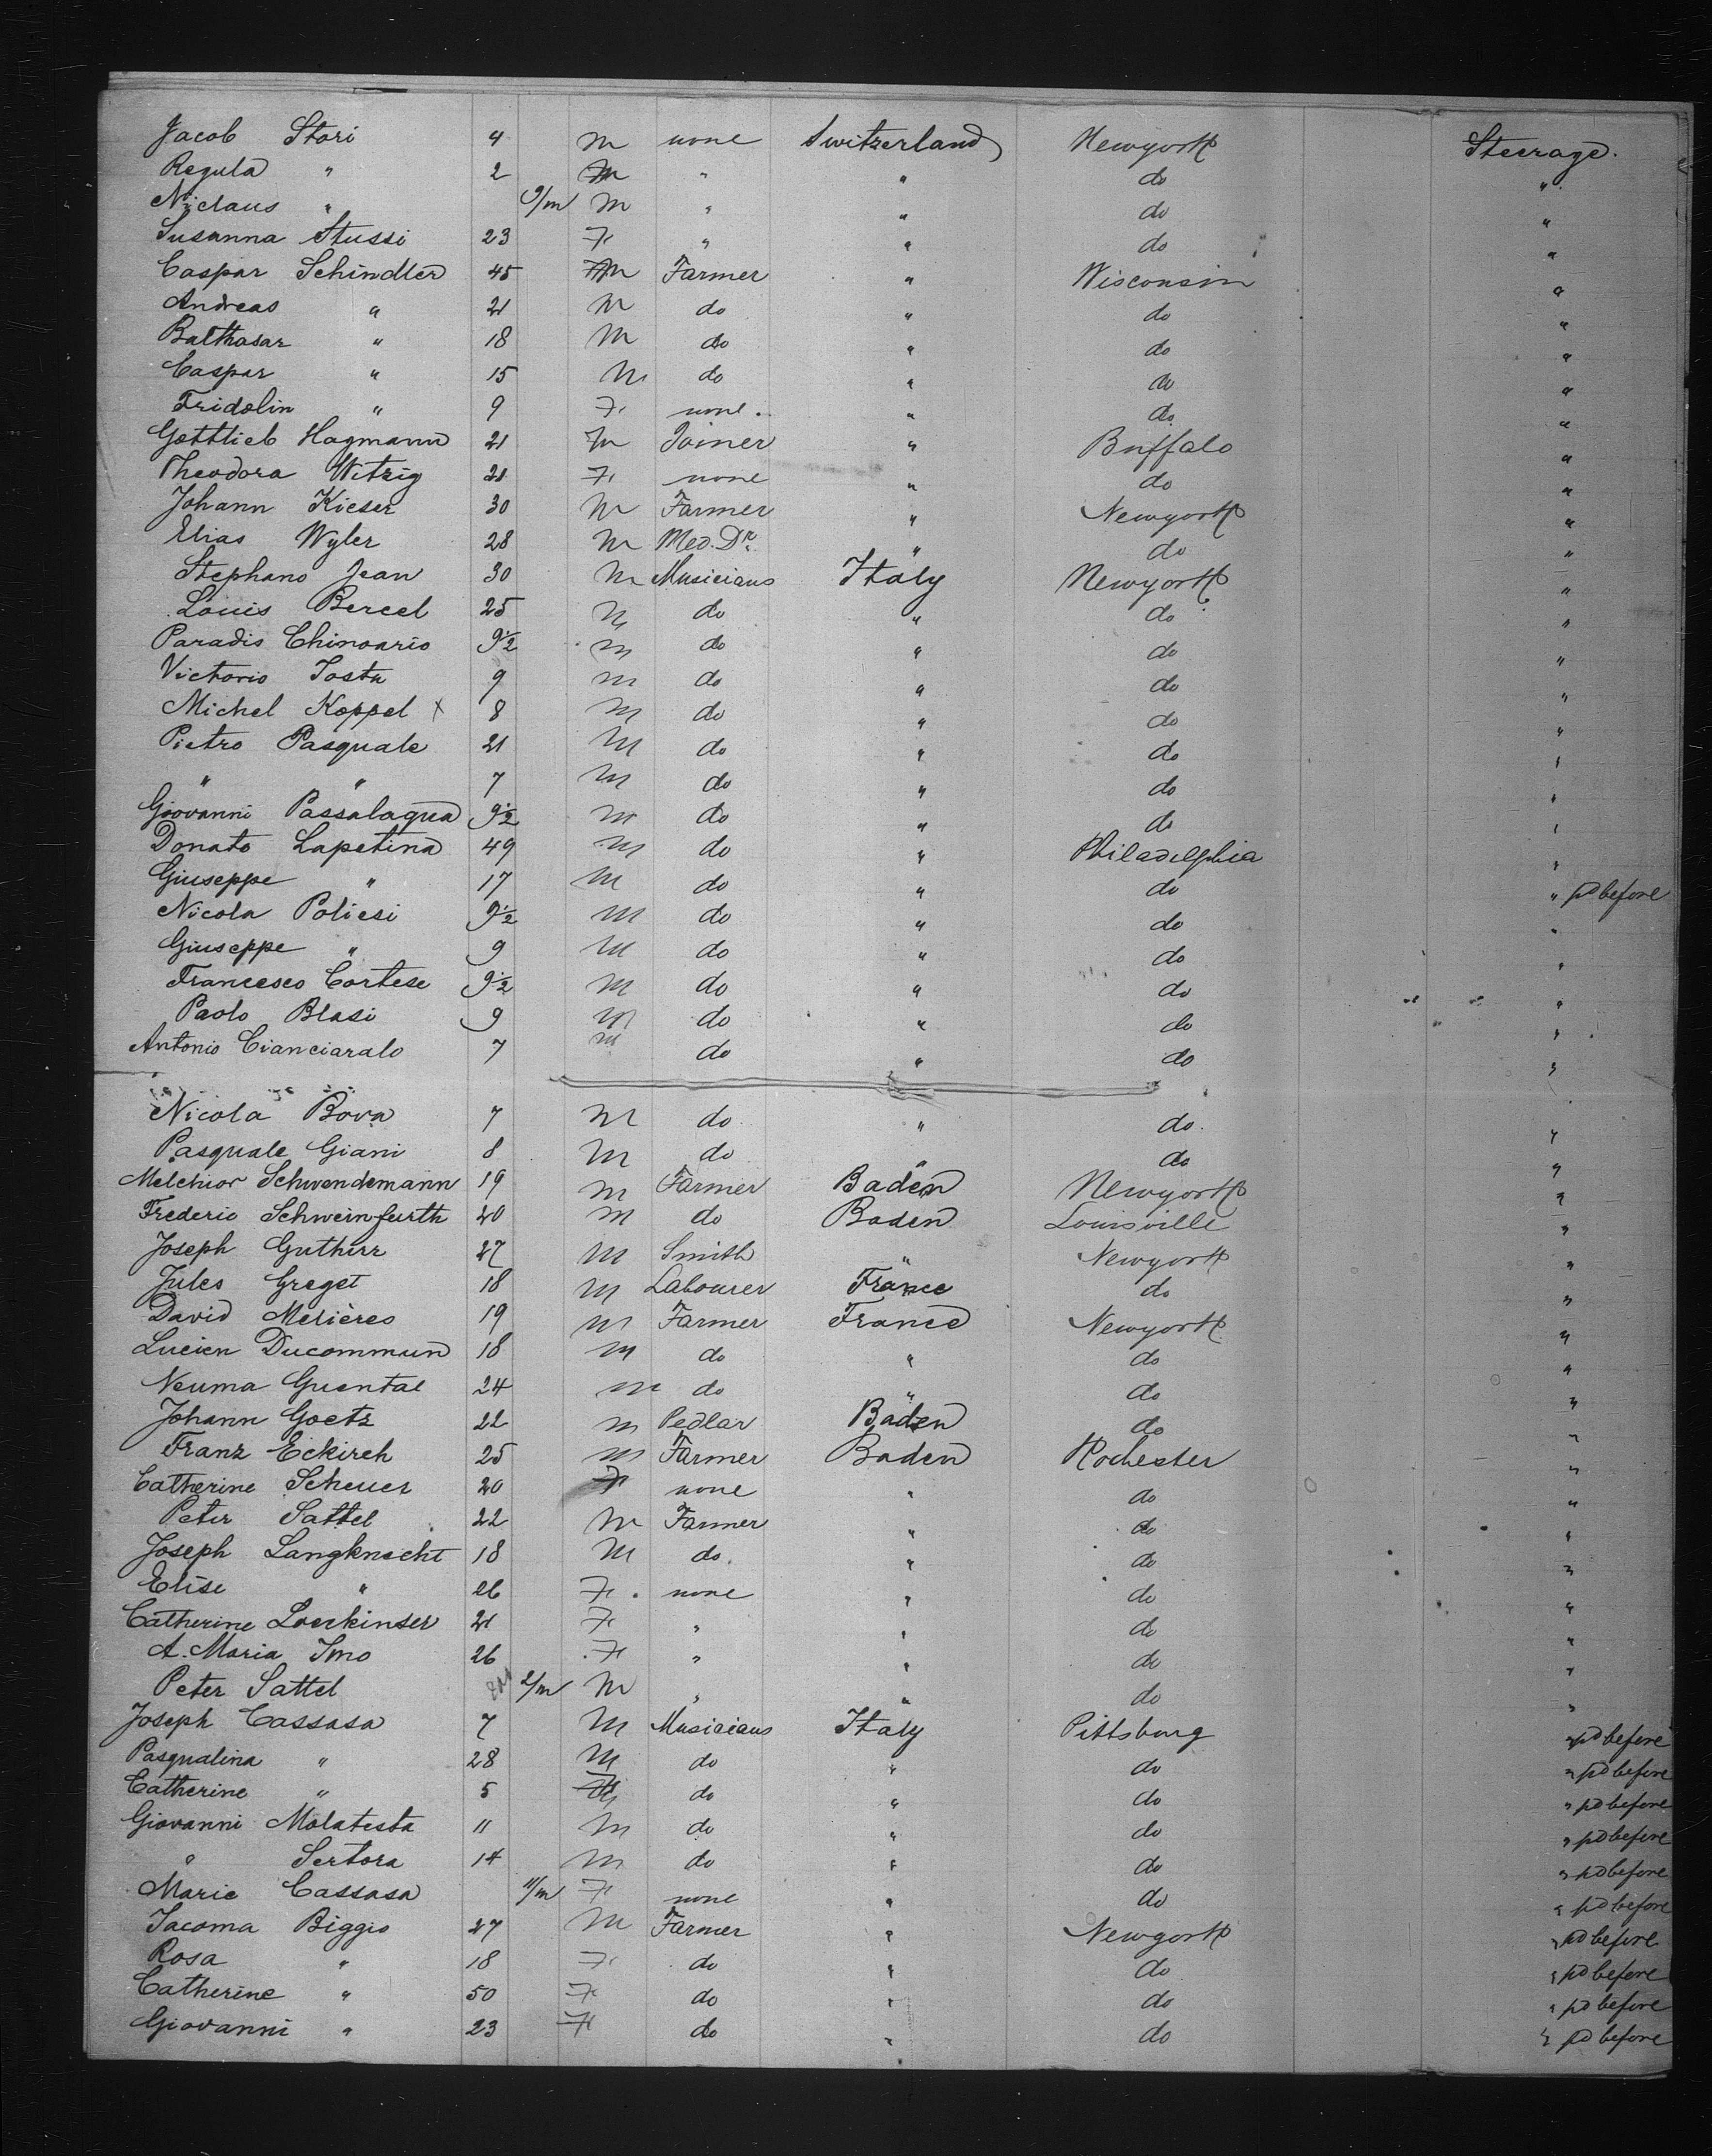 Jacob Stori 4 M none Switzerland Newyork Steerage.
Regula " 2 M " " do "
Niclaus " 9/m M " " do "
Susanna Stussi 23 F " " do "
Caspar Schindler 45 M Farmer " Wisconsin "
Andreas " 21 M do " do "
Balthasar " 18 M do " do "
Caspar " 15 M do " do "
Fridolin " 9 F none. " do "
Gottlieb Hagmann 21 M Joiner " Buffalo "
Theodora Witzig 21 F none " do "
Johann Kieser 30 M Farmer " Newyork "
Elias Wyler 28 M Med. Dr. " do "
Stephano Jean 30 M Musicians Italy Newyork "
Louis Bercel 25 M do " do "
Paradis Chinoario 9½ M do " do "
Victorio Tosta 9 M do " do "
Michel Koppel x 8 M do " do "
Pietro Pasquale 21 M do " do "
" " 7 M do " do "
Giovanni Passalaqua 9½ M do " do "
Donato Lapetina 49 M do " Philadelphia "
Giuseppe " 17 M do " do " pd before
Nicola Policsi 9½ M do " do "
Giuseppe " 9 M do " do "
Francesco Cortese 9½ M do " do "
Paolo Blasi 9 M do " do "
Antonio Cianciaralo 7 M do " do "
Nicola Bova 7 M do " do "
Pasquale Giani 8 M do " do "
Melchior Schwendemann 19 M Farmer Baden Newyork "
Frederic Schweinfurth 20 M do Baden Louisville "
Joseph Gutherr 27 M Smith " Newyork "
Jules Greget 18 M Labourer France do "
David Merières 19 M Farmer France Newyork "
Lucien Ducommun 18 M do " do "
Neuma Guental 24 M do " do "
Johann Goetz 22 M Pedlar Baden do "
Franz Eckirch 25 M Farmer Baden Rochester "
Catherine Scheuer 20 F none " do "
Peter Sattel 22 M Farmer " do "
Joseph Langknecht 18 M do. " do "
Elise " 26 F none " do "
Catherine Loerkinser 21 F " " do "
A. Maria Imo 26 F " " do "
Peter Sattel 2/m M " " do "
Joseph Cassasa 7 M Musicians Italy Pittsburg " pd before
Pasqualina " 28 M do " do " pd before
Catherine " 5 F do " do " pd before
Giovanni Malatesta 11 M do " do " pd before
" Sertora 14 M do " do " pd before
Marie Cassasa 11/m F none " do " pd before
Jacoma Biggio 27 M Farmer " Newyork " pd before
Rosa " 18 F do " do " pd before
Catherine " 50 F do " do " pd before
Giovanni " 23 F do " do " pd before